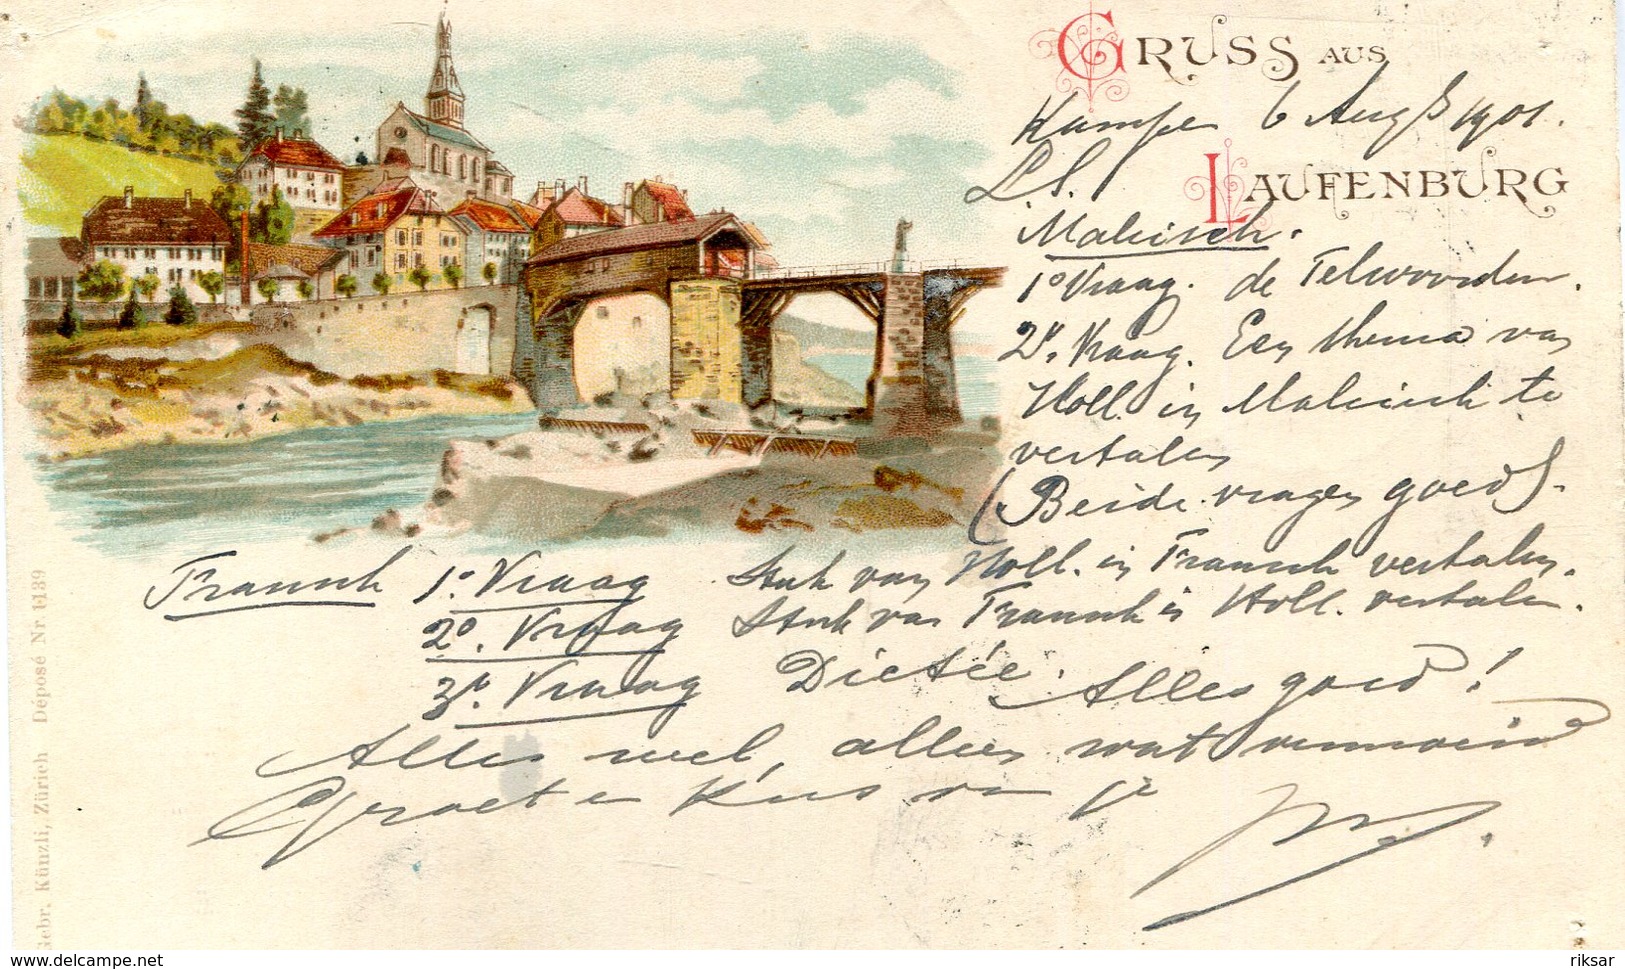 GRUSS AUS
Kampen 6 Aug 1901.
LAUFENBURG
L.S.
Maleisch.
1o Vraag. de Telwoorden.
2e. Vraag. Een thema van
Holl. in Maleisch te
vertalen
(Beide vragen goed).
Fransch 1o. Vraag Stuk van Holl. in Fransch vertalen.
2o. Vraag Stuk van Fransch in Holl. vertalen.
3e. Vraag Dictée. Alles goed!
Alles wel, allen wat vermoeid
Groet en Kus van je
Gebr. Künzli, Zürich Déposé Nr. 1139
www.delcampe.net
riksar